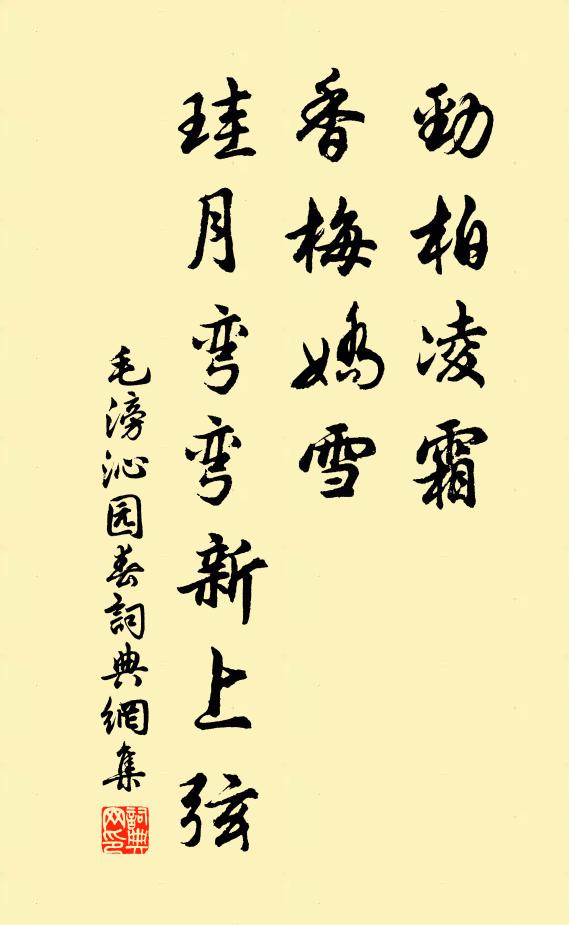 勁柏凌霜
香梅嬌雪
珪月弯弯新上弦
毛滂沁园春詞典網集
詞典网印